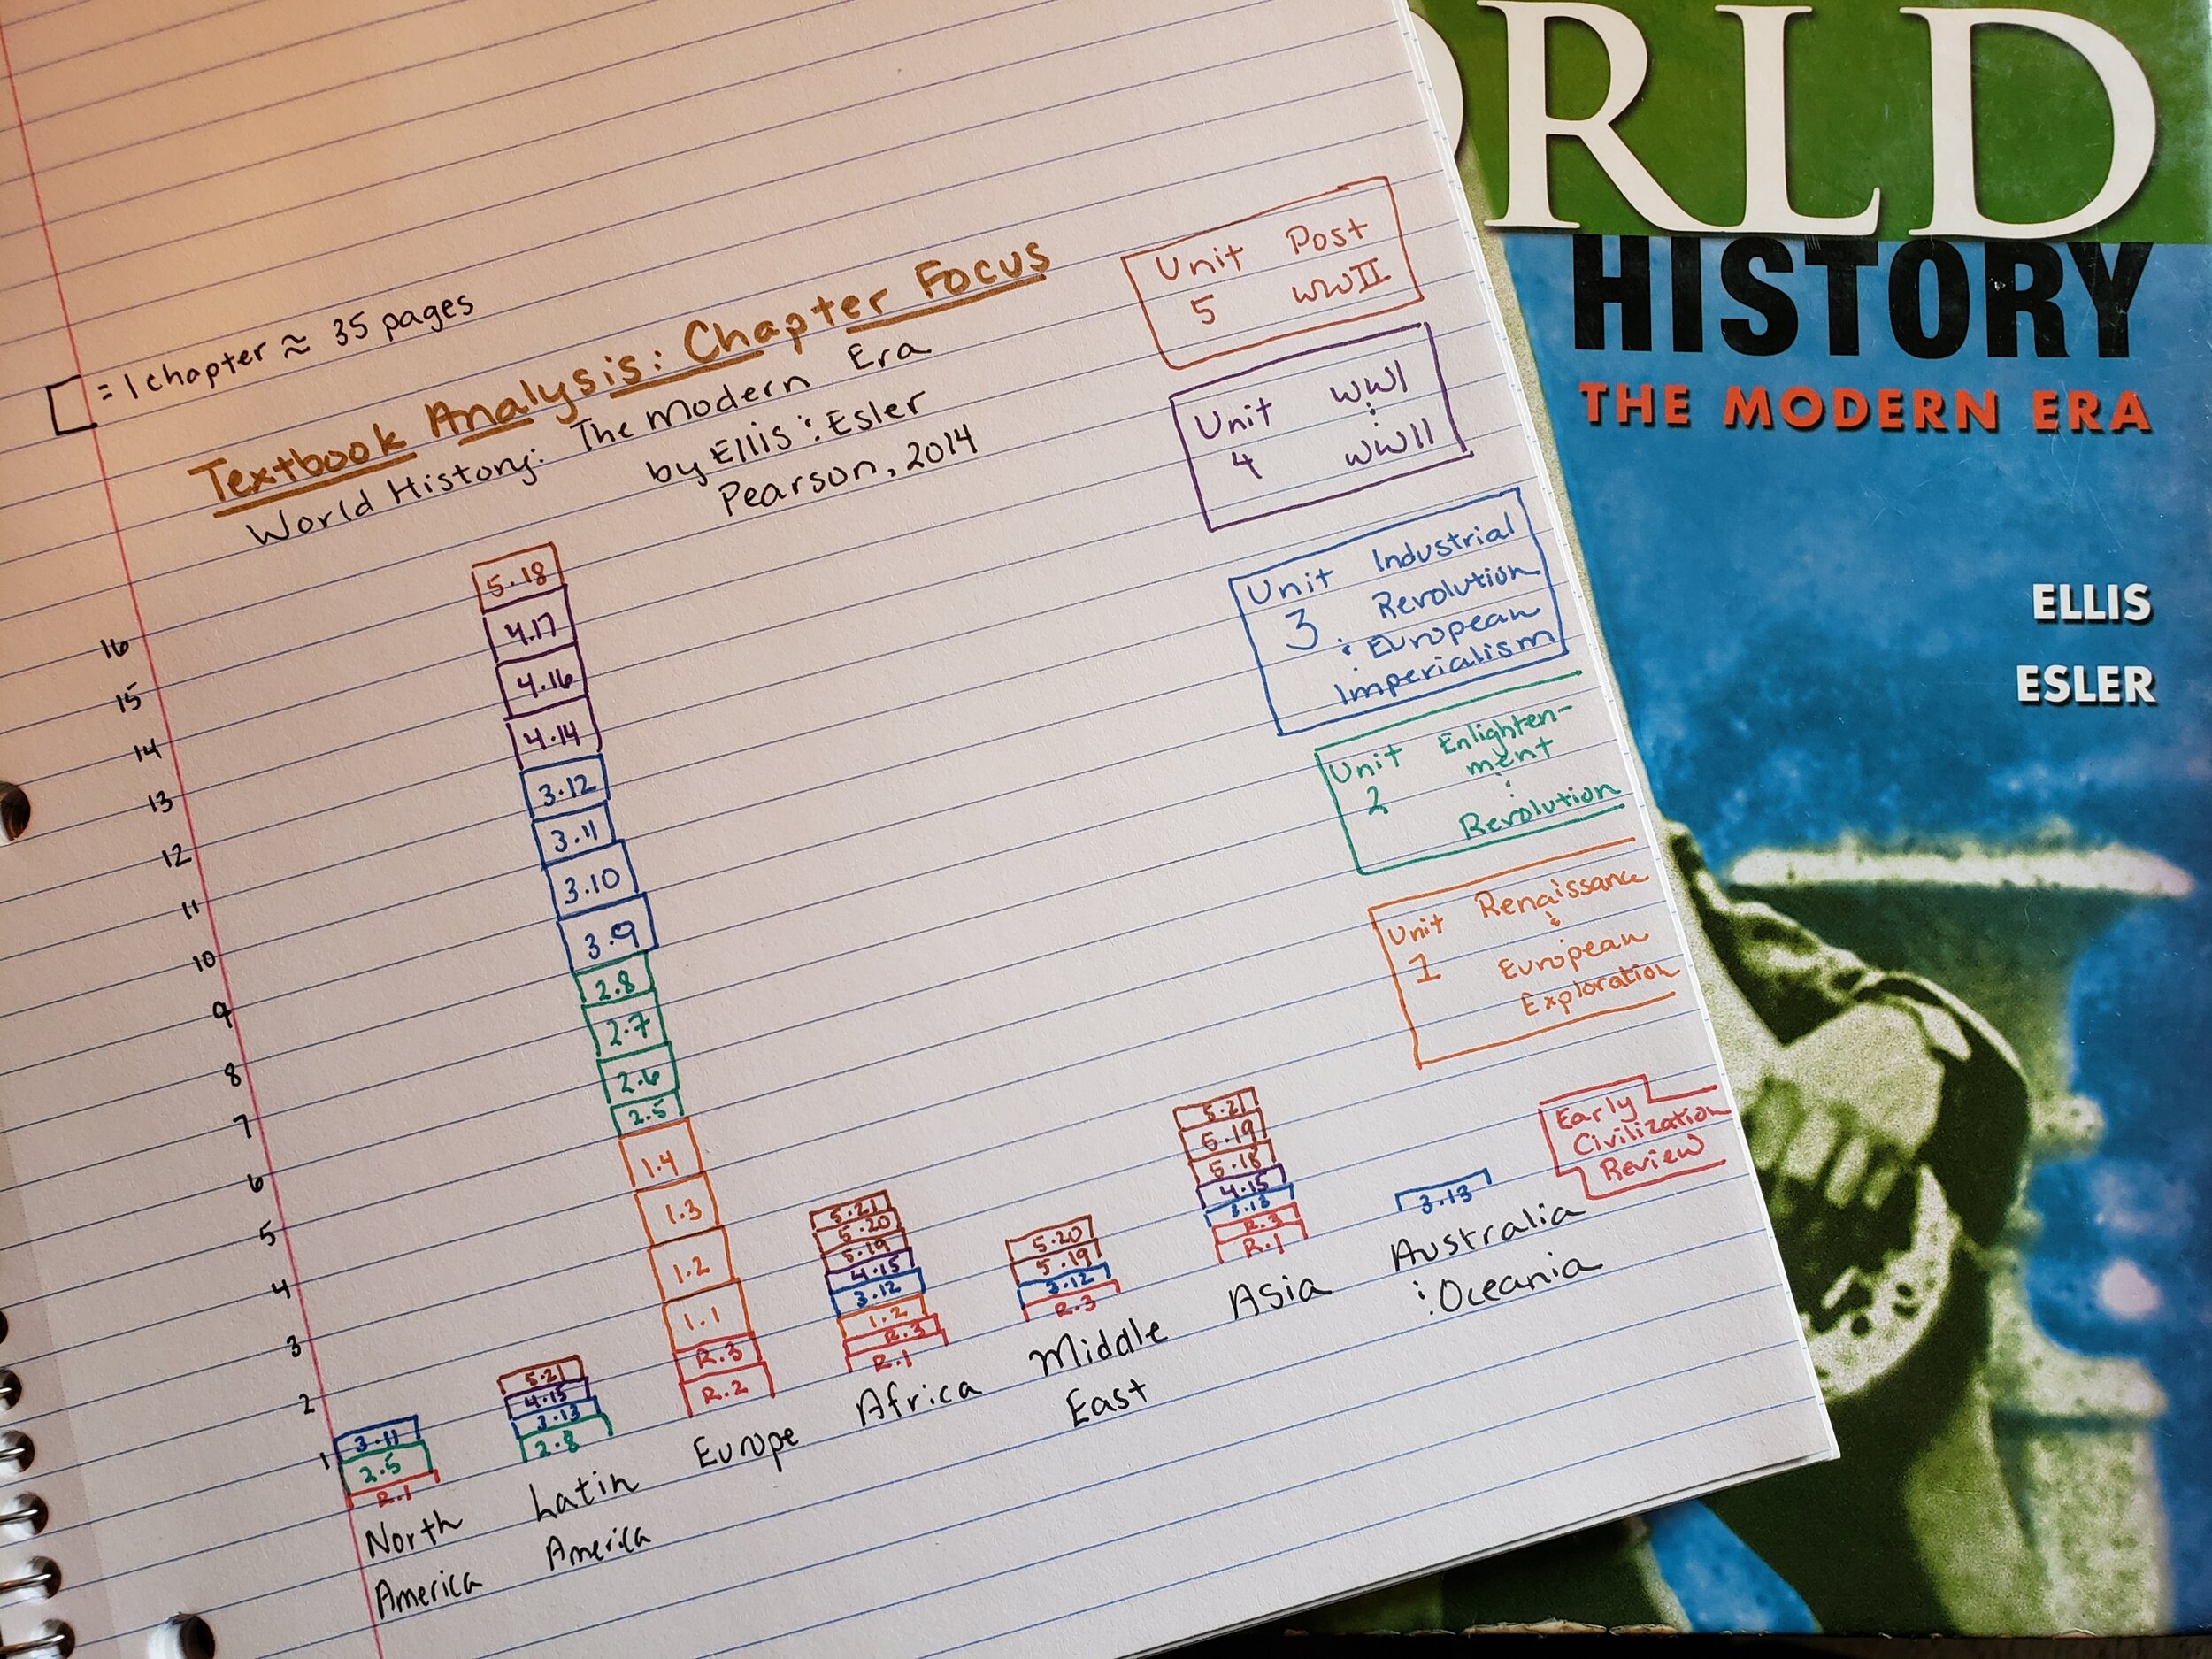 = 1 chapter ≈ 35 pages
Textbook Analysis: Chapter Focus
World History: The Modern Era
by Ellis & Esler
Pearson, 2014
16
15
14
13
12
11
10
9
8
7
6
5
4
3
2
1
3.11
2.5
R.1
North
America
5.21
4.15
3.13
2.8
Latin
America
5.18
4.17
4.16
4.14
3.12
3.11
3.10
3.9
2.8
2.7
2.6
2.5
1.4
1.3
1.2
1.1
R.3
R.2
Europe
5.21
5.20
5.19
4.15
3.12
1.2
R.3
R.1
Africa
5.20
5.19
3.12
R.3
Middle
East
5.21
5.19
5.18
4.15
3.13
R.3
R.1
Asia
3.13
Australia
& Oceania
Unit Post
5 WWII
Unit WWI
&
4 WWII
Unit Industrial
3 Revolution
& European
Imperialism
Unit Enlighten-
2 ment
&
Revolution
Unit Renaissance
&
1 European
Exploration
Early
Civilization
Review
ORLD
HISTORY
THE MODERN ERA
ELLIS
ESLER